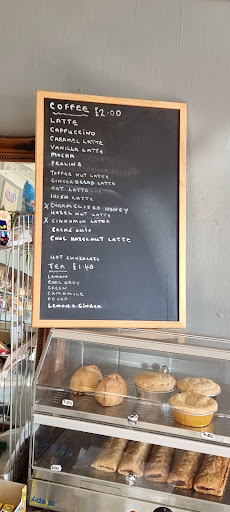 COFFEE £2.00
LATTE
CAPPUCCINO
CARAMEL LATTE
VANILLA LATTE
MOCHA
PRALINE
TOFFEE NUT LATTE
GINGERBREAD LATTE
OAT LATTE
IRISH LATTE
X CARAMELISED HONEY
HAZEL NUT LATTE
X CINNAMON LATTE
CHOC HAZELNUT LATTE
HOT CHOCOLATE
TEA £1.40
LEMON
EARL GREY
GREEN
CAMOMILE
DECAF
LEMON & GINGER